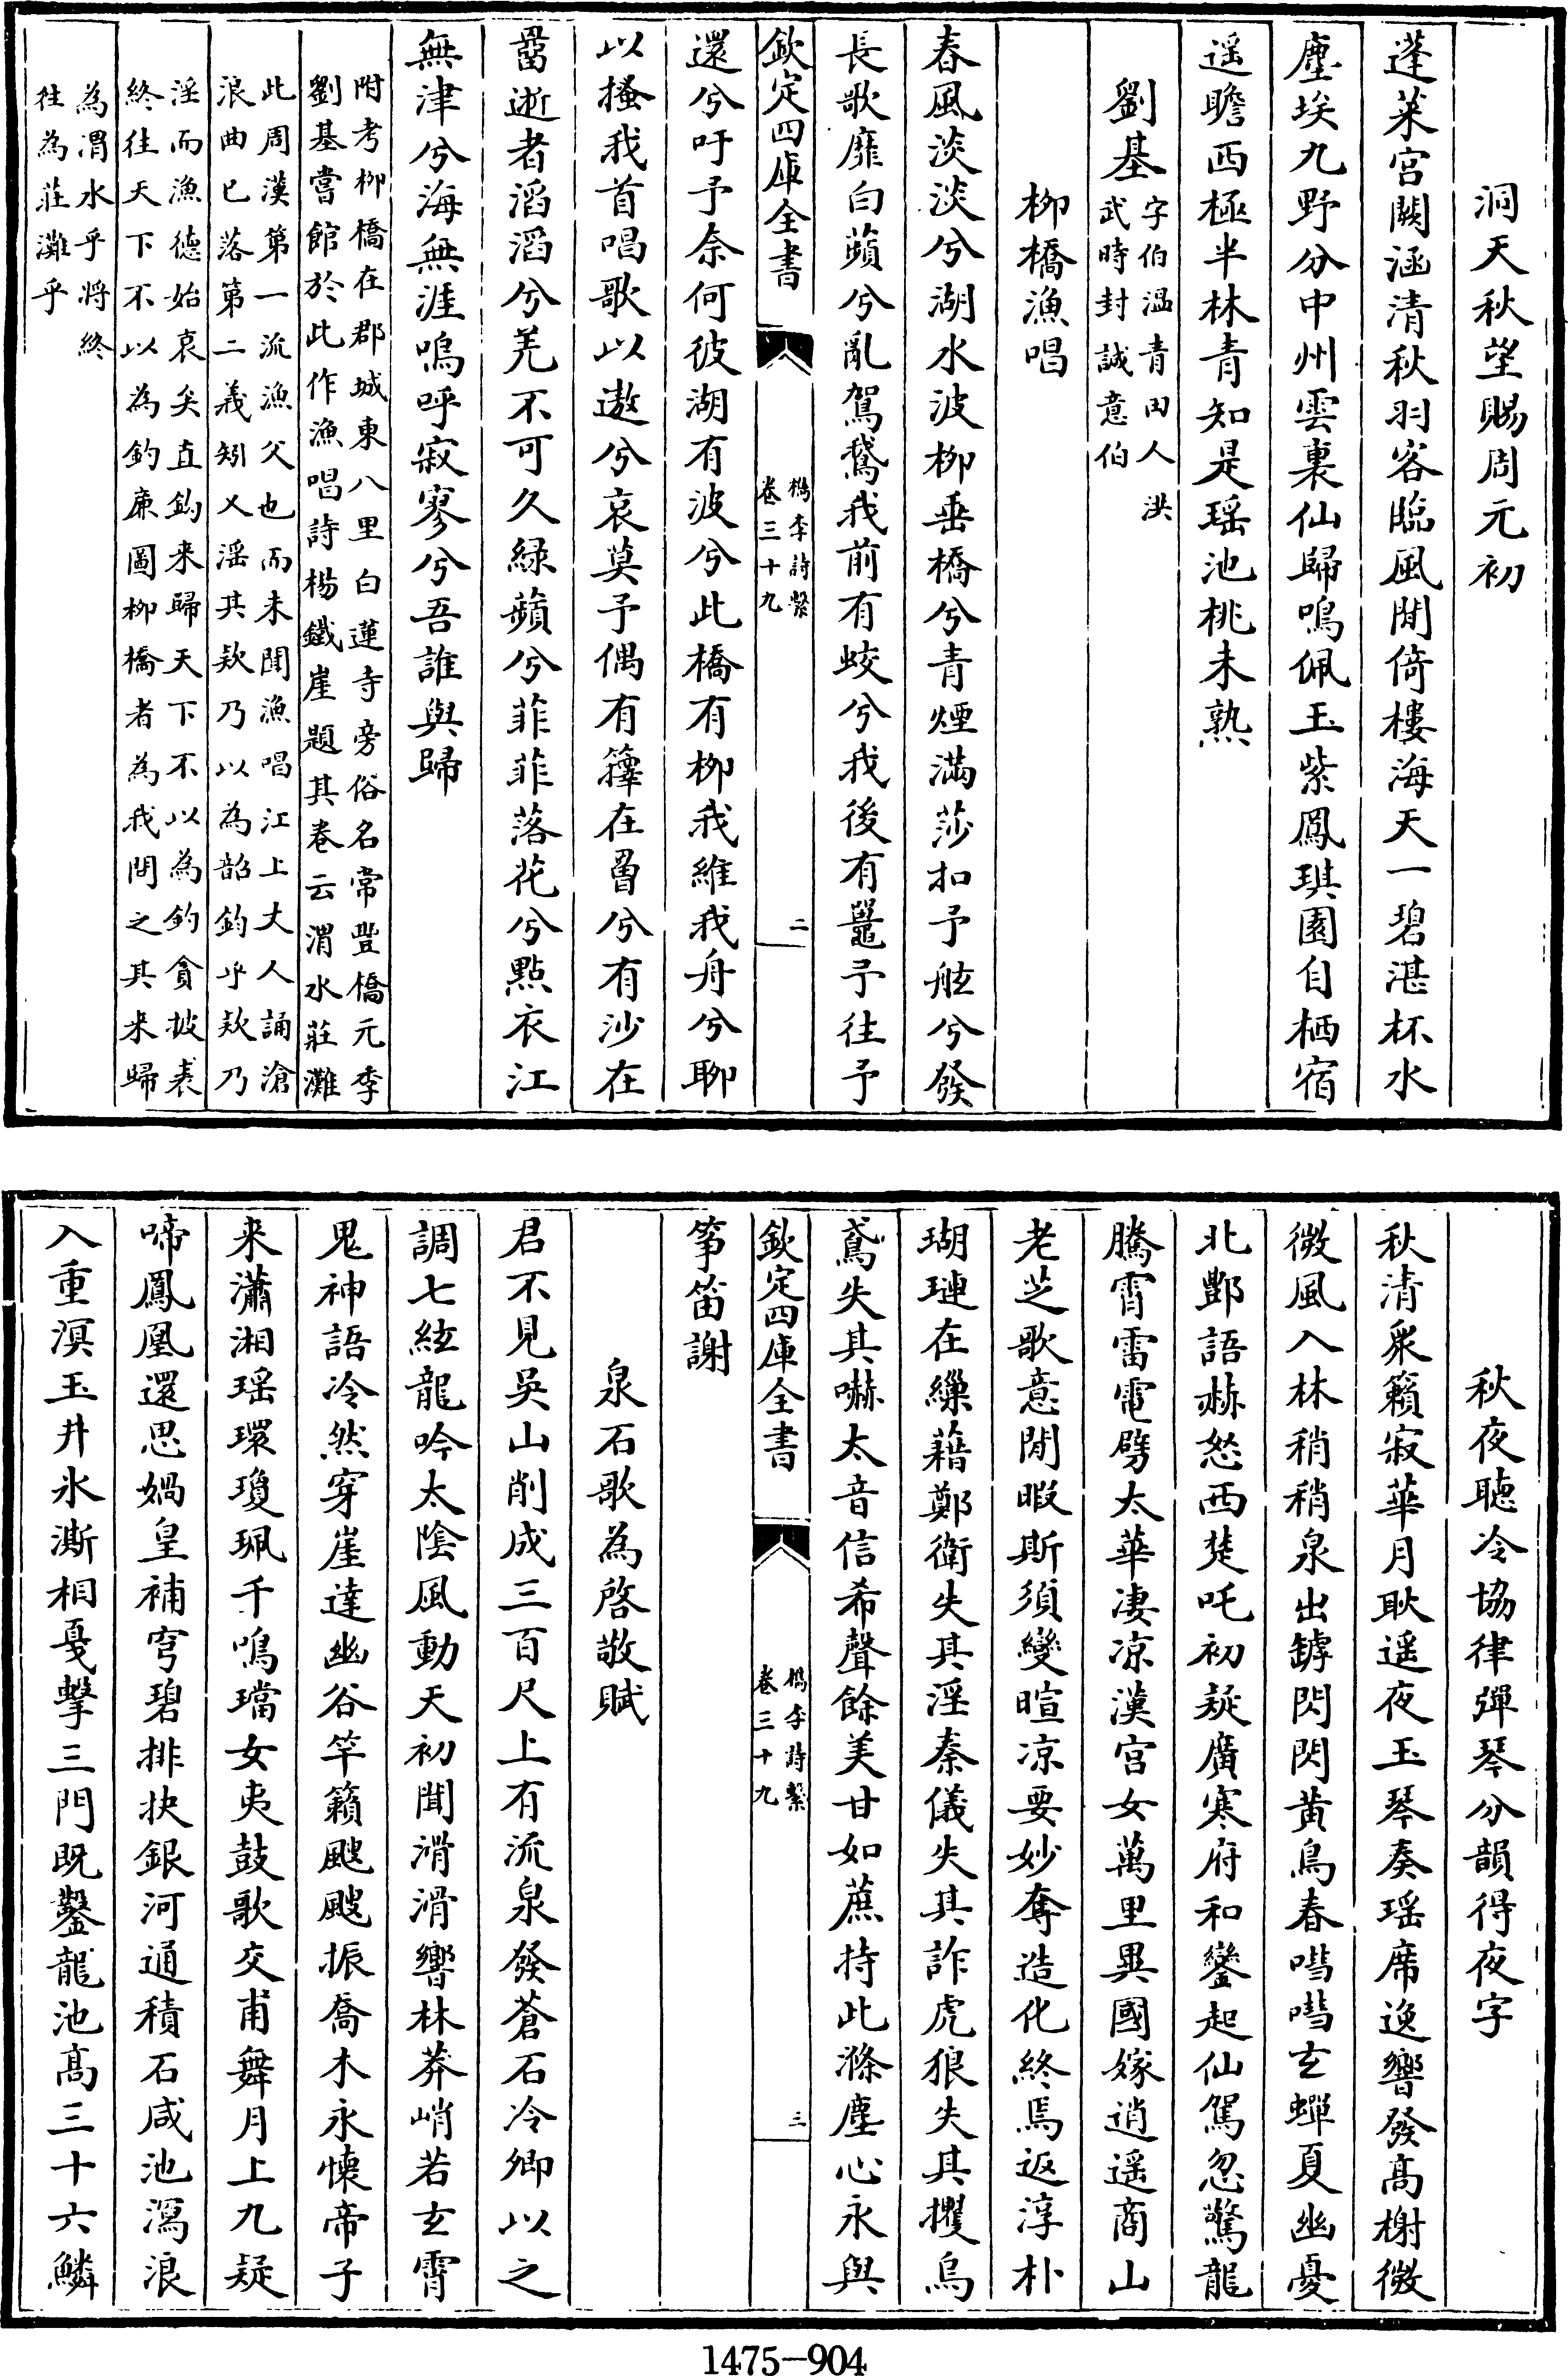 洞天秋望賜周元初
蓬萊宮闕涵清秋羽客臨風閒倚樓海天一碧湛杯水
塵埃九野分中州雲裏仙歸鳴佩玉紫鳳琪園自栖宿
遥瞻西極半林青知是瑶池桃未熟
劉基字伯温青田人洪
武時封誠意伯
柳橋漁唱
春風淡淡兮湖水波柳垂橋兮青煙滿莎扣予舷兮發
長歌靡白蘋兮亂駕鵞我前有蛟兮我後有鼉予往予
欽定四庫全書
檇李詩繫
卷三十九
二
還兮吁予奈何彼湖有波兮此橋有柳我維我舟兮聊
以搔我首唱歌以遨兮哀莫予偶有籜在罾兮有沙在
罶逝者滔滔兮羌不可久緑蘋兮菲菲落花兮點衣江
無津兮海無涯嗚呼寂寥兮吾誰與歸
附考柳橋在郡城東八里白蓮寺旁俗名常豐橋元季
劉基嘗館於此作漁唱詩楊鐵崖題其卷云渭水莊灘
此周漢第一流漁父也而未聞漁唱江上丈人誦滄
浪曲已落第二義矧乂滛其欸乃以為韶鈞乎欸乃
滛而漁德始哀矣直鈎来歸天下不以為釣貪披裘
終往天下不以為釣廉圖柳橋者為我問之其来歸
為渭水乎將終
往為莊灘乎
秋夜聽冷協律彈琴分韻得夜字
秋清衆籟寂華月耿遥夜玉琴奏瑶席逸響發髙榭微
微風入林稍稍泉出罅閃閃黄鳥春唶唶玄蟬夏幽憂
北酆語赫怒西楚吒初疑廣寒府和鑾起仙駕忽驚龍
騰霄雷電劈太華凄凉漢宫女萬里異國嫁逍遥商山
老芝歌意閒暇斯須變暄凉要妙奪造化終焉返淳朴
瑚璉在繅藉鄭衛失其淫秦儀失其詐虎狼失其攫烏
鳶失其嚇太音信希聲餘美甘如蔗持此滌塵心永與
欽定四庫全書
檇李詩繫
卷三十九
三
筝笛謝
泉石歌為啓敬賦
君不見吳山削成三百尺上有流泉發蒼石冷卿以之
調七絃龍吟太陰風動天初聞滑滑響林莽峭若玄霄
鬼神語冷然穿崖達幽谷竿籟颼颼振喬木永懷帝子
来瀟湘瑶環瓊珮千鳴璫女夷鼓歌交甫舞月上九疑
啼鳳凰還思媧皇補穹碧排抉銀河通積石咸池瀉浪
入重溟玉井氷澌相戛擊三門既鑿龍池髙三十六鱗
1475-904